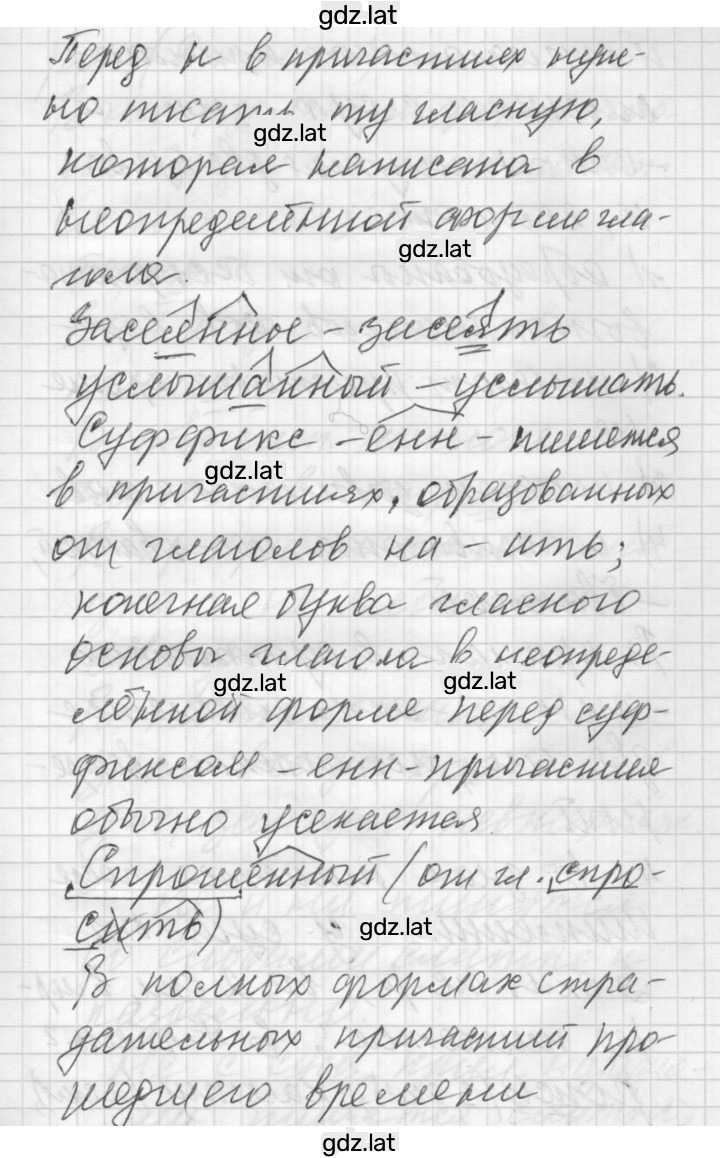 gdz.lat
Перед н в причастиях нуж-
но писать ту гласную,
gdz.lat
которая написана в
неопределённой форме гла-
gdz.lat
гола.
Засеянное – засеять
услышанный – услышать.
Суффикс – енн – пишется
gdz.lat
в причастиях, образованных
от глаголов на – ить;
конечная буква гласного
основы глагола в неопреде-
gdz.lat gdz.lat
лённой форме перед суф-
фиксом – енн – причастия
обычно усекается.
Спрошенный (от гл. спро-
сить)
gdz.lat
В полных формах стра-
дательных причастий про-
шедшего времени
gdz.lat